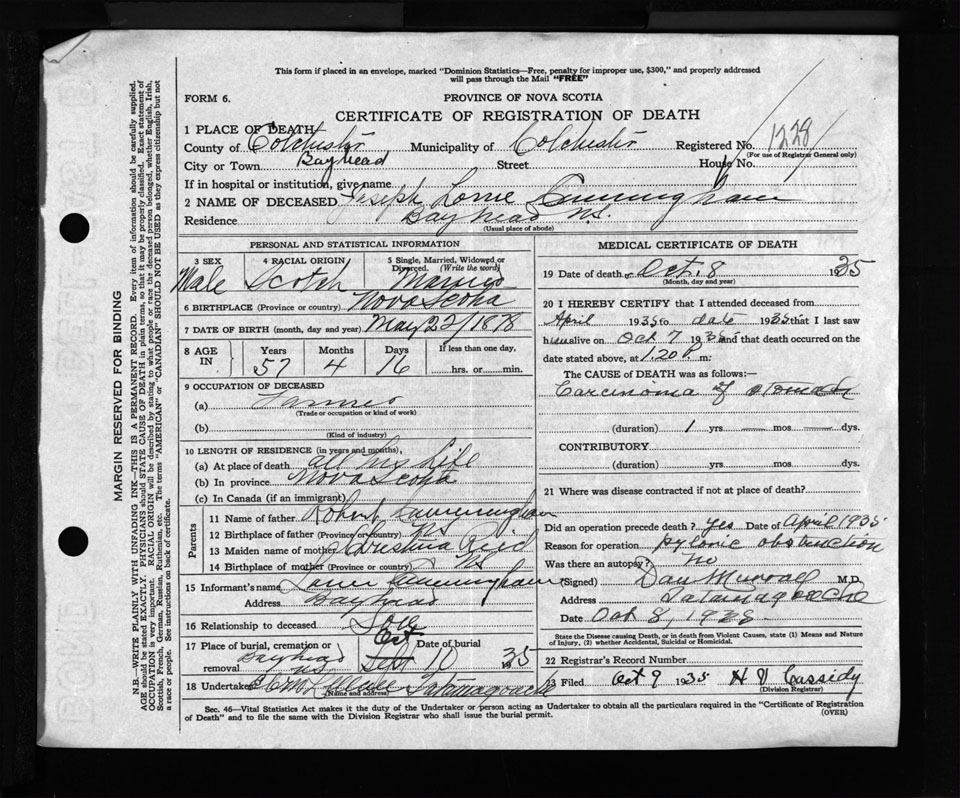 This form if placed in an envelope, marked "Dominion Statistics—Free, penalty for improper use, $300," and properly addressed
will pass through the Mail "FREE"
FORM 6.
PROVINCE OF NOVA SCOTIA
CERTIFICATE OF REGISTRATION OF DEATH
1 PLACE OF DEATH
County of Colchester Municipality of Colchester Registered No. 1228
(For use of Registrar General only)
City or Town Bayhead Street House No.
If in hospital or institution, give name
2 NAME OF DECEASED Joseph Lorne Cunningham
Residence Bayhead N.S.
(Usual place of abode)
PERSONAL AND STATISTICAL INFORMATION
3 SEX 4 RACIAL ORIGIN 5 Single, Married, Widowed or Divorced. (Write the word)
Male Scotch Married
6 BIRTHPLACE (Province or country) Nova Scotia
7 DATE OF BIRTH (month, day and year) May 22/1878
8 AGE IN Years Months Days If less than one day,
57 4 16 hrs. or min.
9 OCCUPATION OF DECEASED
(a) Farmer
(Trade or occupation or kind of work)
(b)
(Kind of industry)
10 LENGTH OF RESIDENCE (in years and months),
(a) At place of death all his life
(b) In province Nova Scotia
(c) In Canada (if an immigrant)
Parents
11 Name of father Robert Cunningham
12 Birthplace of father (Province or country) NS
13 Maiden name of mother Christina Reid
14 Birthplace of mother (Province or country) NS
15 Informant's name Cunningham
Address Bayhead
16 Relationship to deceased Son
17 Place of burial, cremation or removal Date of burial
Bayhead NS Sept Oct 10 1935
18 Undertaker Tatamagouche
(Name and address)
MEDICAL CERTIFICATE OF DEATH
19 Date of death Oct. 8 1935
(Month, day and year)
20 I HEREBY CERTIFY that I attended deceased from
April 1935 to date 1935 that I last saw
him alive on Oct 7 1935 and that death occurred on the
date stated above, at 1.20 P. m.
The CAUSE OF DEATH was as follows:
Carcinoma of stomach
(duration) 1 yrs. — mos. — dys.
CONTRIBUTORY
(duration) yrs. mos. dys.
21 Where was disease contracted if not at place of death?
Did an operation precede death? Yes Date of April 1935
Reason for operation pyloric obstruction
Was there an autopsy? No
(Signed) Dan Murray M.D.
Address Tatamagouche
Date Oct 8, 1935
State the Disease causing Death, or in death from Violent Causes, state (1) Means and Nature
of Injury, (2) whether Accidental, Suicidal or Homicidal.
22 Registrar's Record Number
23 Filed Oct 9 1935 Cassidy
(Division Registrar)
Sec. 46—Vital Statistics Act makes it the duty of the Undertaker or person acting as Undertaker to obtain all the particulars required in the "Certificate of Registration
of Death" and to file the same with the Division Registrar who shall issue the burial permit.
(OVER)
MARGIN RESERVED FOR BINDING
N.B.—WRITE PLAINLY WITH UNFADING INK—THIS IS A PERMANENT RECORD. Every item of information should be carefully supplied.
AGE should be stated EXACTLY. PHYSICIANS should STATE CAUSE OF DEATH in plain terms, so that it may be properly classified. Exact statement of
OCCUPATION is very important. RACIAL ORIGIN will be described by stating to what people or race the deceased person belonged, whether English, Irish,
Scottish, French, German, Russian, Ruthenian, etc. The terms "AMERICAN" or "CANADIAN" SHOULD NOT BE USED as they express citizenship but not
a race or people. See instructions on back of certificate.